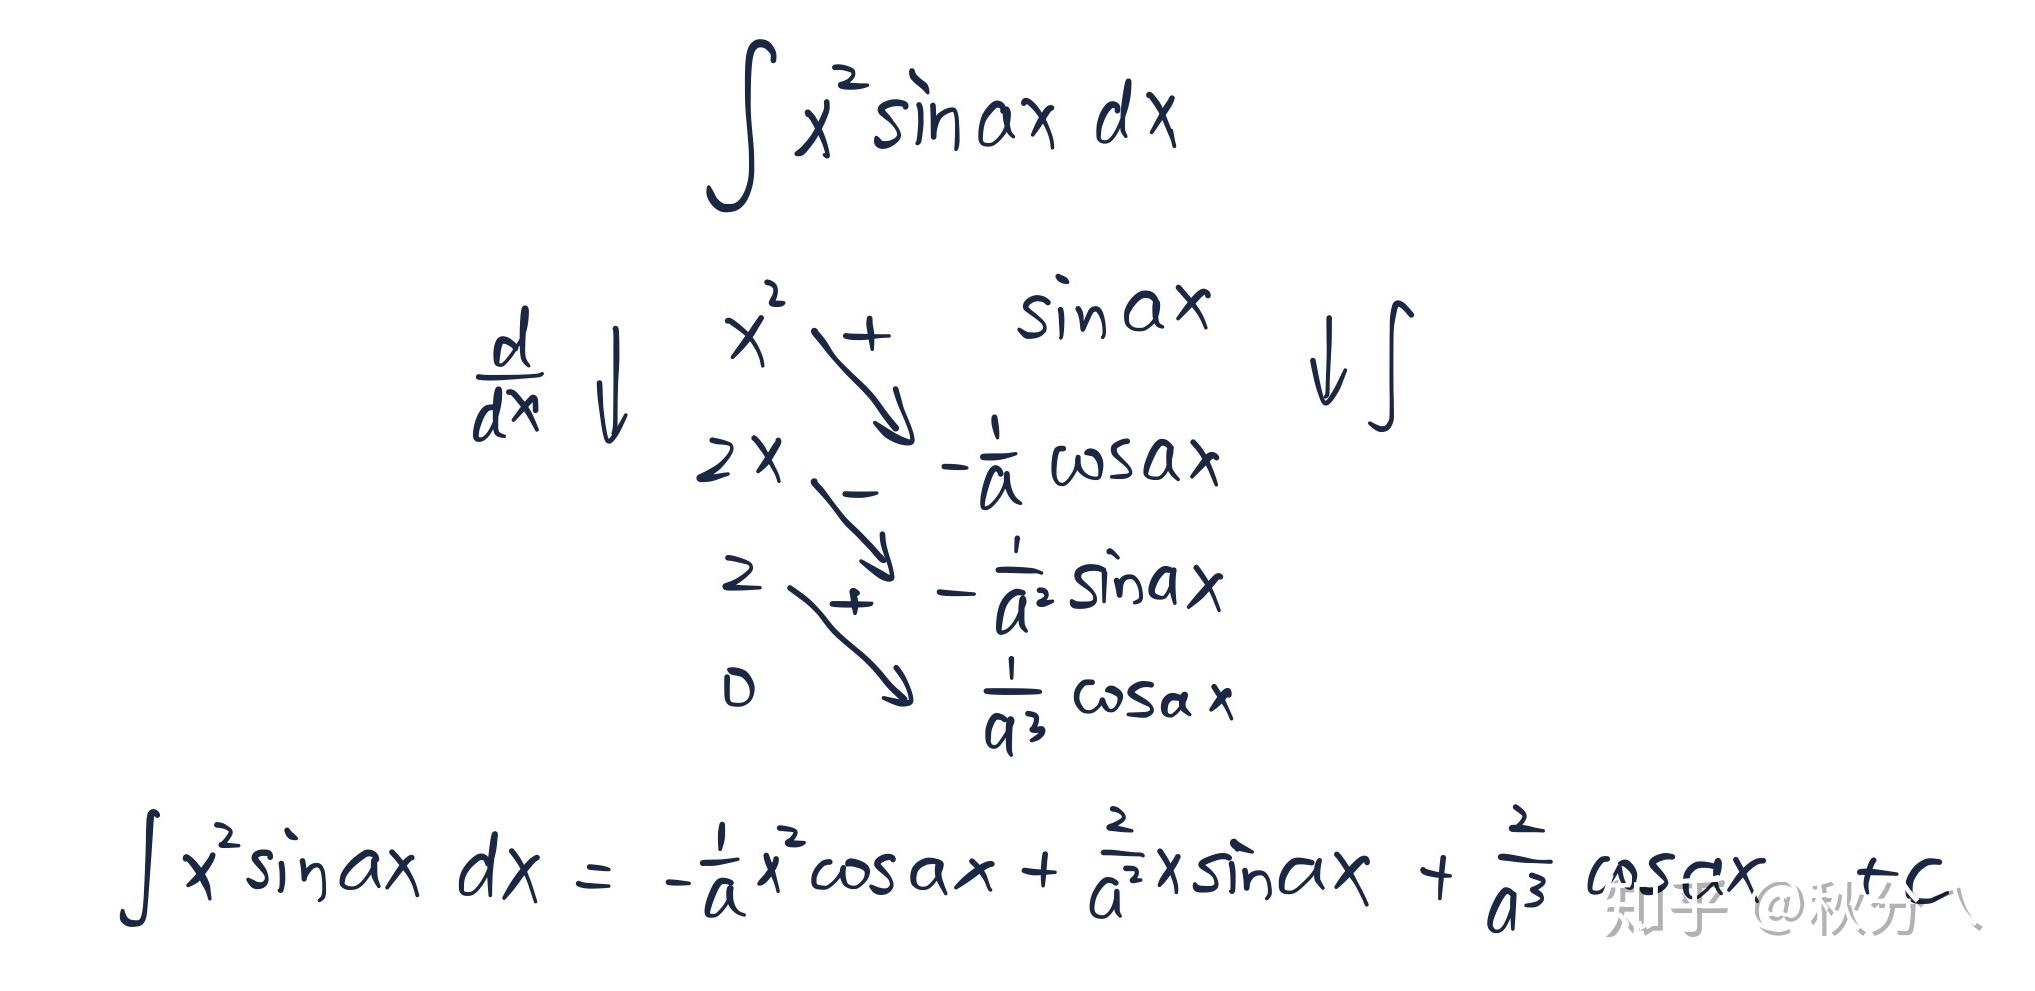 ∫ x² sin ax dx
d/dx ↓ x² + sin ax ↓ ∫
2x − -1/a cos ax
2 + -1/a² sin ax
0 1/a³ cos ax
∫ x² sin ax dx = -1/a x² cos ax + 2/a² x sin ax + 2/a³ cos ax + c
知乎 @秋分八